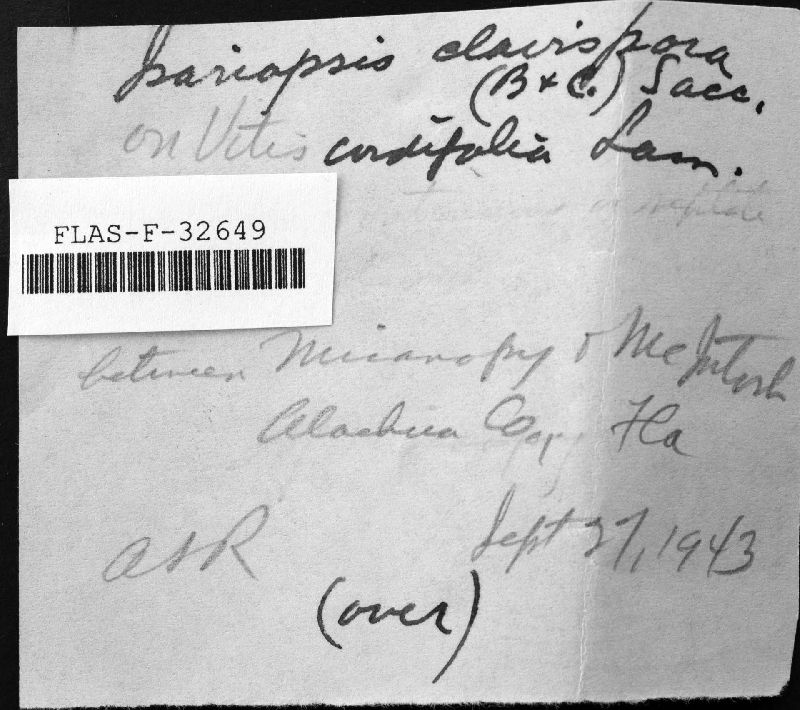 Isariopsis clavispora
(B + C.) Sacc.
on Vitis cordifolia Lam.
FLAS-F-32649
between Micanopy & McIntosh
Alachua Co., Fla
ASR Sept 27, 1943
(over)